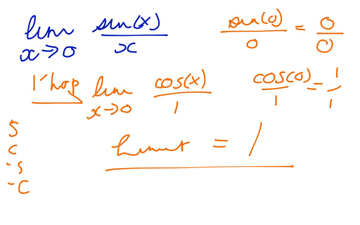 lim x→0 sin(x)/x sin(0)/0 = 0/0
l'hop lim x→0 cos(x)/1 cos(0)/1 = 1/1
limit = 1
S
C
-S
-C